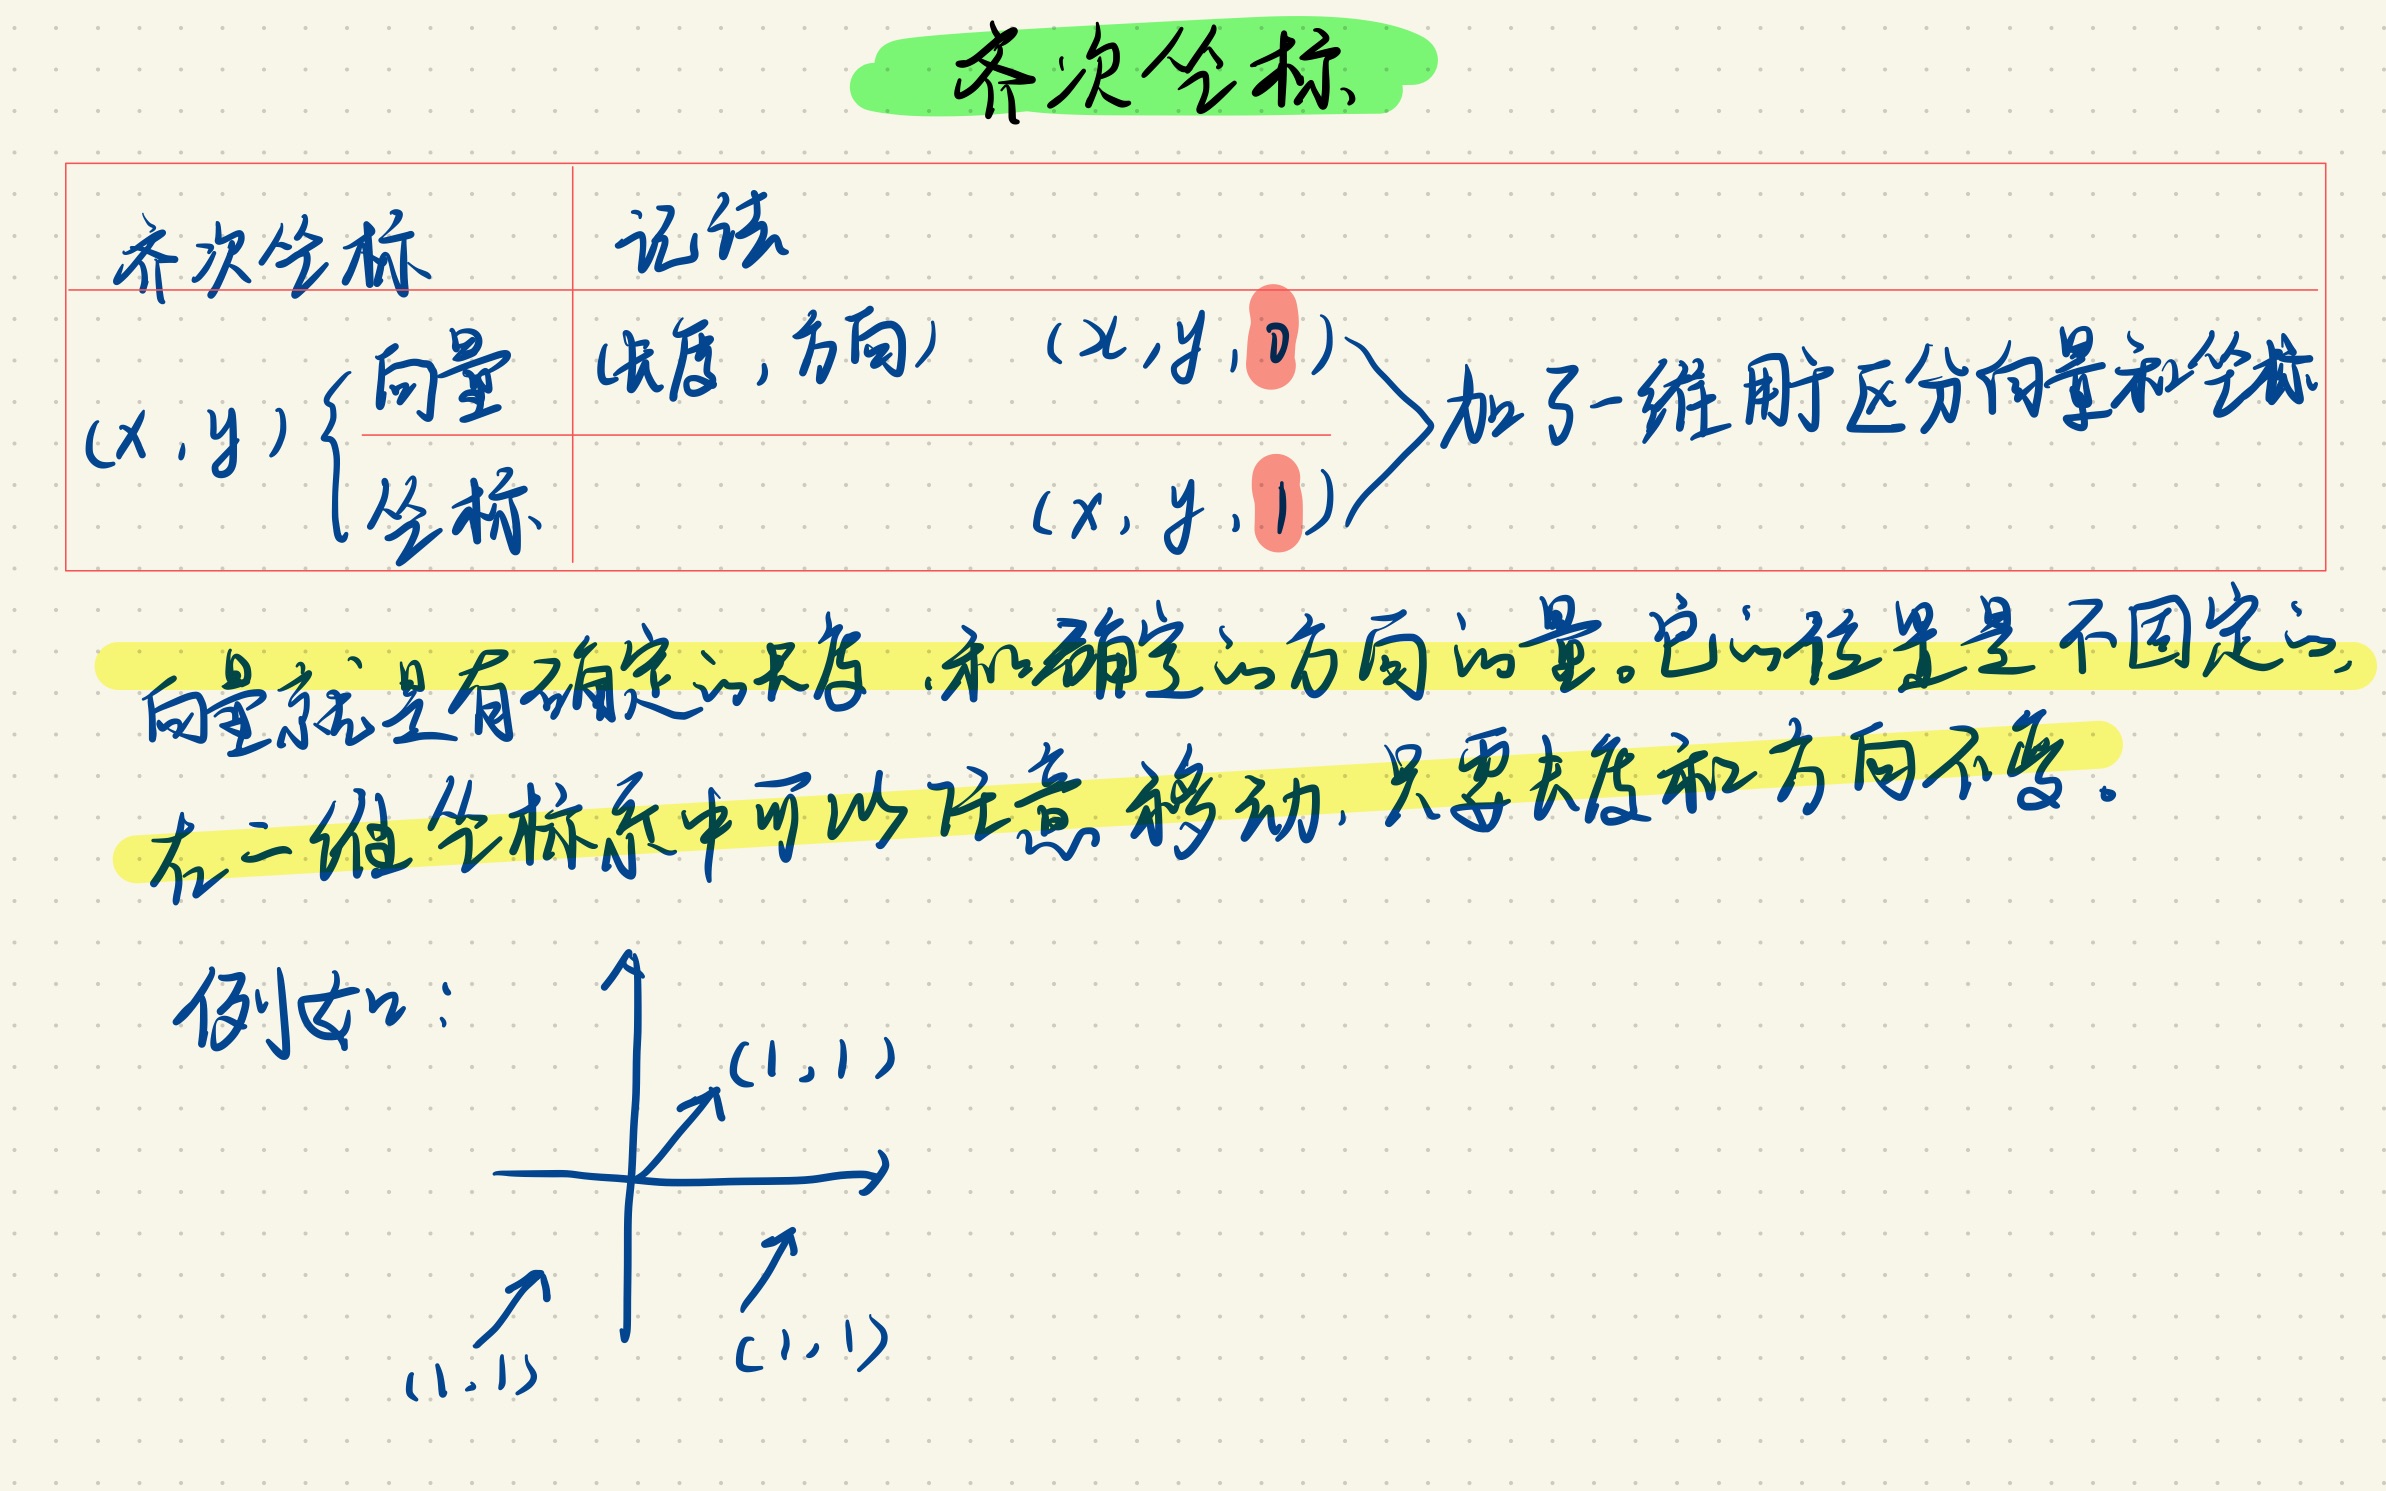 齐次坐标
齐次坐标 记法
(x, y) { 向量 (长度, 方向) (x, y, 0)
坐标 (x, y, 1)
加了一维用于区分向量和坐标
向量就是有确定的长度, 和确定的方向的量。它的位置是不固定的,
在二维坐标系中可以任意移动, 只要长度和方向不变。
例如:
(1, 1)
(1, 1)
(1, 1)